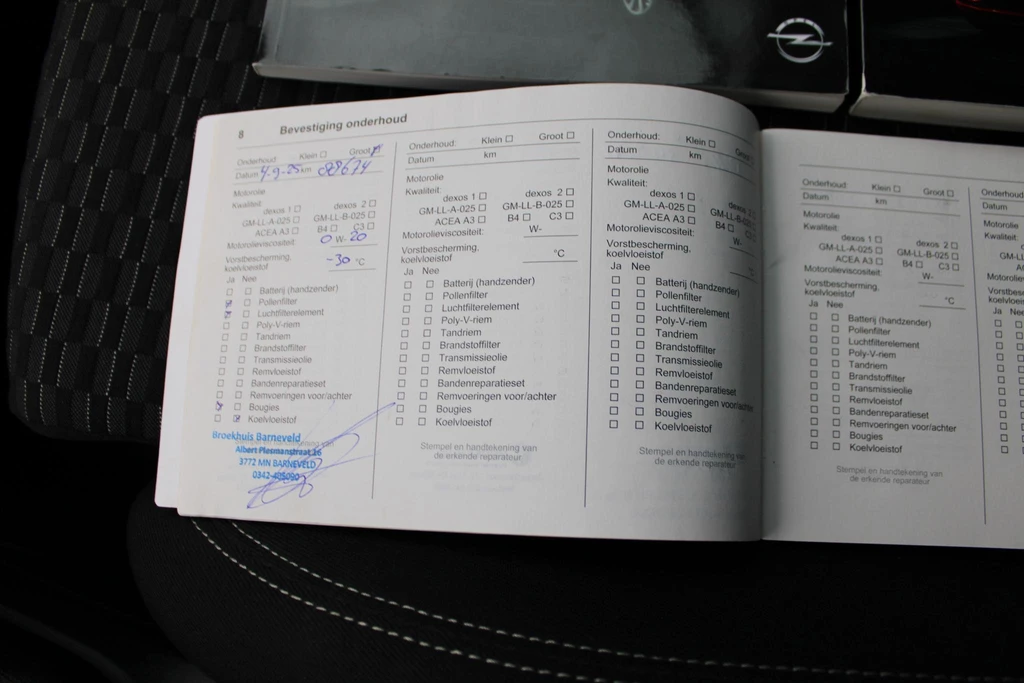 8 Bevestiging onderhoud
Onderhoud: Klein ☐ Groot ☑
Datum 4-9-25 km 88674
Motorolie
Kwaliteit:
dexos 1 ☐ dexos 2 ☐
GM-LL-A-025 ☐ GM-LL-B-025 ☐
ACEA A3 ☐ B4 ☐ C3 ☐
Motorolieviscositeit: 0 W- 20
Vorstbescherming,
koelvloeistof -30 °C
Ja Nee
☐ ☐ Batterij (handzender)
☑ ☐ Pollenfilter
☑ ☐ Luchtfilterelement
☐ ☐ Poly-V-riem
☐ ☐ Tandriem
☐ ☐ Brandstoffilter
☐ ☐ Transmissieolie
☐ ☐ Remvloeistof
☐ ☐ Bandenreparatieset
☐ ☐ Remvoeringen voor/achter
☑ ☐ Bougies
☐ ☑ Koelvloeistof
Broekhuis Barneveld
Albert Plesmanstraat 26
3772 MN BARNEVELD
0342-405090
Onderhoud: Klein ☐ Groot ☐
Datum km
Motorolie
Kwaliteit:
dexos 1 ☐ dexos 2 ☐
GM-LL-A-025 ☐ GM-LL-B-025 ☐
ACEA A3 ☐ B4 ☐ C3 ☐
Motorolieviscositeit: W-
Vorstbescherming,
koelvloeistof °C
Ja Nee
☐ ☐ Batterij (handzender)
☐ ☐ Pollenfilter
☐ ☐ Luchtfilterelement
☐ ☐ Poly-V-riem
☐ ☐ Tandriem
☐ ☐ Brandstoffilter
☐ ☐ Transmissieolie
☐ ☐ Remvloeistof
☐ ☐ Bandenreparatieset
☐ ☐ Remvoeringen voor/achter
☐ ☐ Bougies
☐ ☐ Koelvloeistof
Stempel en handtekening van
de erkende reparateur
Onderhoud: Klein ☐ Groot ☐
Datum km
Motorolie
Kwaliteit:
dexos 1 ☐ dexos 2 ☐
GM-LL-A-025 ☐ GM-LL-B-025 ☐
ACEA A3 ☐ B4 ☐ C3 ☐
Motorolieviscositeit: W-
Vorstbescherming,
koelvloeistof °C
Ja Nee
☐ ☐ Batterij (handzender)
☐ ☐ Pollenfilter
☐ ☐ Luchtfilterelement
☐ ☐ Poly-V-riem
☐ ☐ Tandriem
☐ ☐ Brandstoffilter
☐ ☐ Transmissieolie
☐ ☐ Remvloeistof
☐ ☐ Bandenreparatieset
☐ ☐ Remvoeringen voor/achter
☐ ☐ Bougies
☐ ☐ Koelvloeistof
Stempel en handtekening van
de erkende reparateur
Onderhoud: Klein ☐ Groot ☐
Datum km
Motorolie
Kwaliteit:
dexos 1 ☐ dexos 2 ☐
GM-LL-A-025 ☐ GM-LL-B-025 ☐
ACEA A3 ☐ B4 ☐ C3 ☐
Motorolieviscositeit: W-
Vorstbescherming,
koelvloeistof °C
Ja Nee
☐ ☐ Batterij (handzender)
☐ ☐ Pollenfilter
☐ ☐ Luchtfilterelement
☐ ☐ Poly-V-riem
☐ ☐ Tandriem
☐ ☐ Brandstoffilter
☐ ☐ Transmissieolie
☐ ☐ Remvloeistof
☐ ☐ Bandenreparatieset
☐ ☐ Remvoeringen voor/achter
☐ ☐ Bougies
☐ ☐ Koelvloeistof
Stempel en handtekening van
de erkende reparateur
Datum
Motorolie
Kwaliteit:
Ja